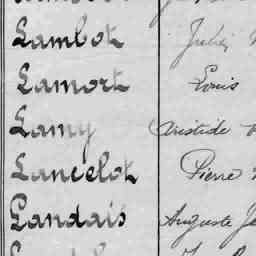 Lambot Jules
Lamort Louis
Lamy Aristide
Lancelot Pierre
Landais Auguste